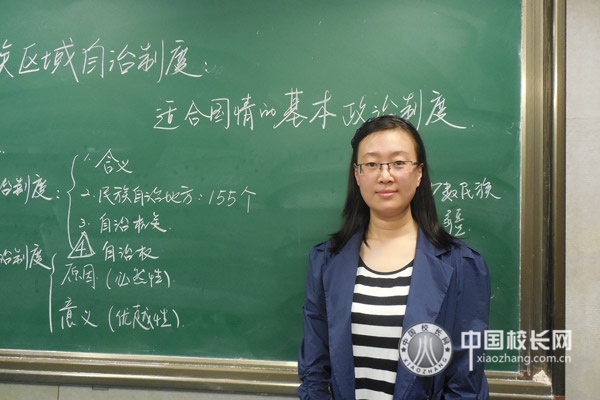 族区域自治制度：
适合国情的基本政治制度.
1. 含义
治制度： 2. 民族自治地方：155个
数民族
3. 自治机关.
4 自治权
治制度
原因 (必然性)
意义 (优越性).
中国校长网
XIAOZHANG
中国校长网
xiaozhang.com.cn